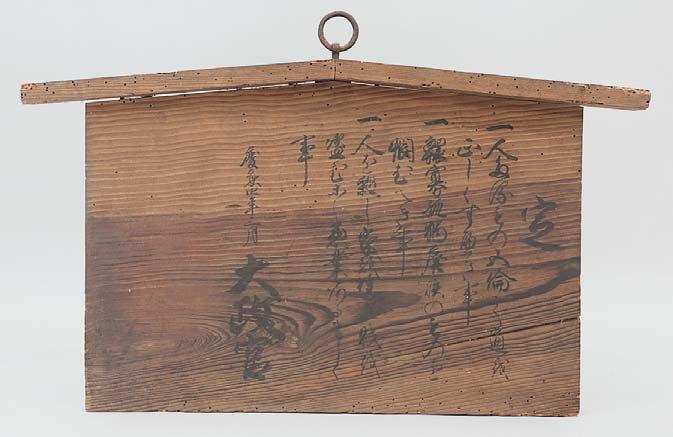 定
一人たるもの五倫の道を
正しくすへき事
一鰥寡孤獨癈疾のものを
憫むへき事
一人を殺し家を焼き財を
盗む等の惡業あるましく
事
慶應四年三月
太政官